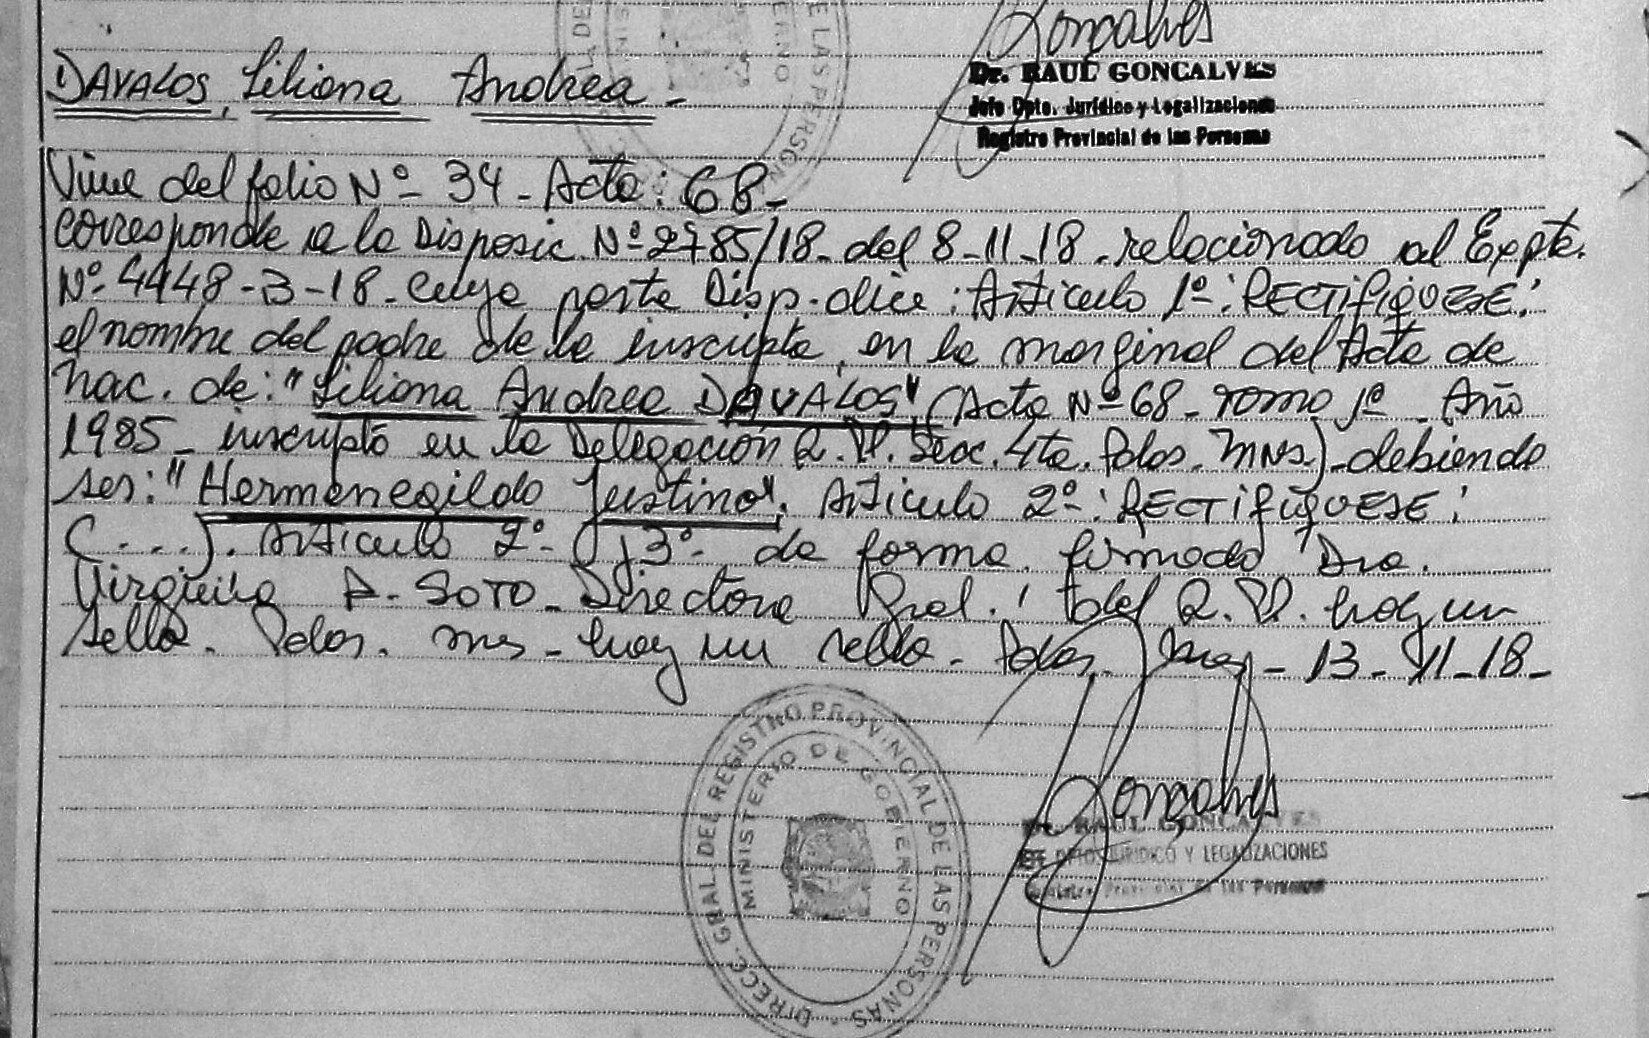 Goncalves
Dr. RAUL GONCALVES
Jefe Dpto. Jurídico y Legalizaciones
Registro Provincial de las Personas
DAVALOS, Liliana Andrea -
Viene del folio Nº 34 - Acta: 68 -
Corresponde a la Disposic. Nº 2785/18 - del 8-11-18 - relacionado al Expte.
Nº 4448-B-18 - cuya parte Disp. dice: Articulo 1º: RECTIFIQUESE:
el nombre del padre de la inscripta, en la marginal del Acta de
nac. de: "Liliana Andrea DAVALOS" (Acta Nº 68 - Tomo 1º - Año
1985 - inscripto en la Delegación R.P. Secc. 4ta. Pdas. Mns.) - debiendo
ser: "Hermenegildo Justino". Articulo 2º: RECTIFIQUESE:
(...). Articulo 2º y 3º de forma. firmado Dra.
Virginia A. SOTO - Directora Gral. del R.P. hay un
sello. Pdas. mns - hay un sello - Pdas. Mns - 13-11-18 -
DIRECC. GRAL. DEL REGISTRO PROVINCIAL DE LAS PERSONAS
MINISTERIO DE GOBIERNO
Goncalves
Dr. RAUL GONCALVES
JEFE DPTO JURIDICO Y LEGALIZACIONES
Registro Provincial de las Personas